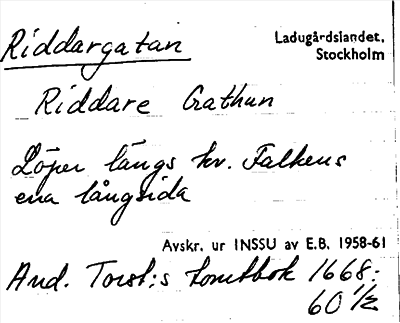 Riddargatan
Ladugårdslandet,
Stockholm
Riddare Gathun
Löper längs kv. Falkens
ena långsida
Avskr. ur INSSU av E.B. 1958-61
And. Torst:s tomtbok 1668:
60 1/2